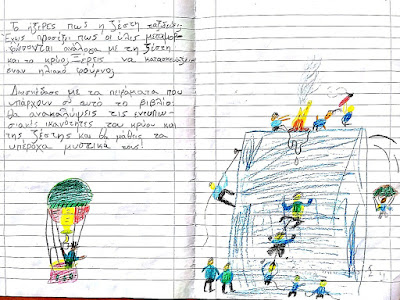 Το ήξερες πως η ζέστη ταξιδεύει
Έχεις προσέξει πως οι ύλες μεταμορ-
φώνονται ανάλογα με τη ζέστη
και το κρύο; Ξέρεις να κατασκευάζεις
έναν ηλιακό φούρνο;
Διασκέδασε με τα πειράματα που
υπάρχουν σ' αυτό το βιβλίο:
θα ανακαλύψεις τις εντυπω-
σιακές ικανότητες του κρύου και
της ζέστης και θα μάθεις τα
υπέροχα μυστικά τους!